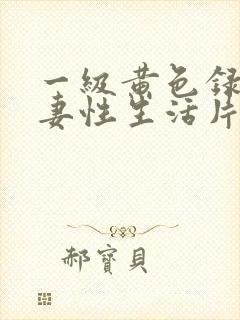 一級黄色録
妻性生活片
郝寶貝